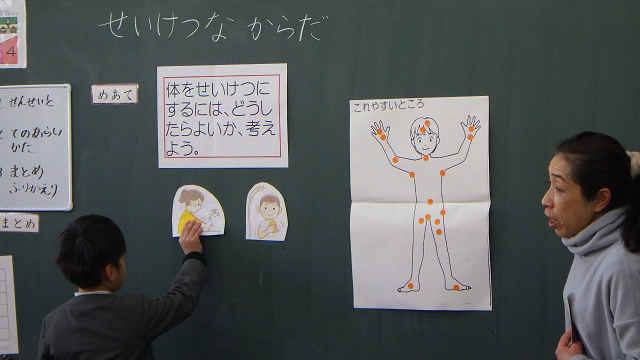 せいけつな からだ
4
めあて
体をせいけつに
するには、どうし
たらよいか、考え
よう。
これやすいところ
せんせいと
2 てのあらい
かた
3 まとめ
ふりかえり
まとめ